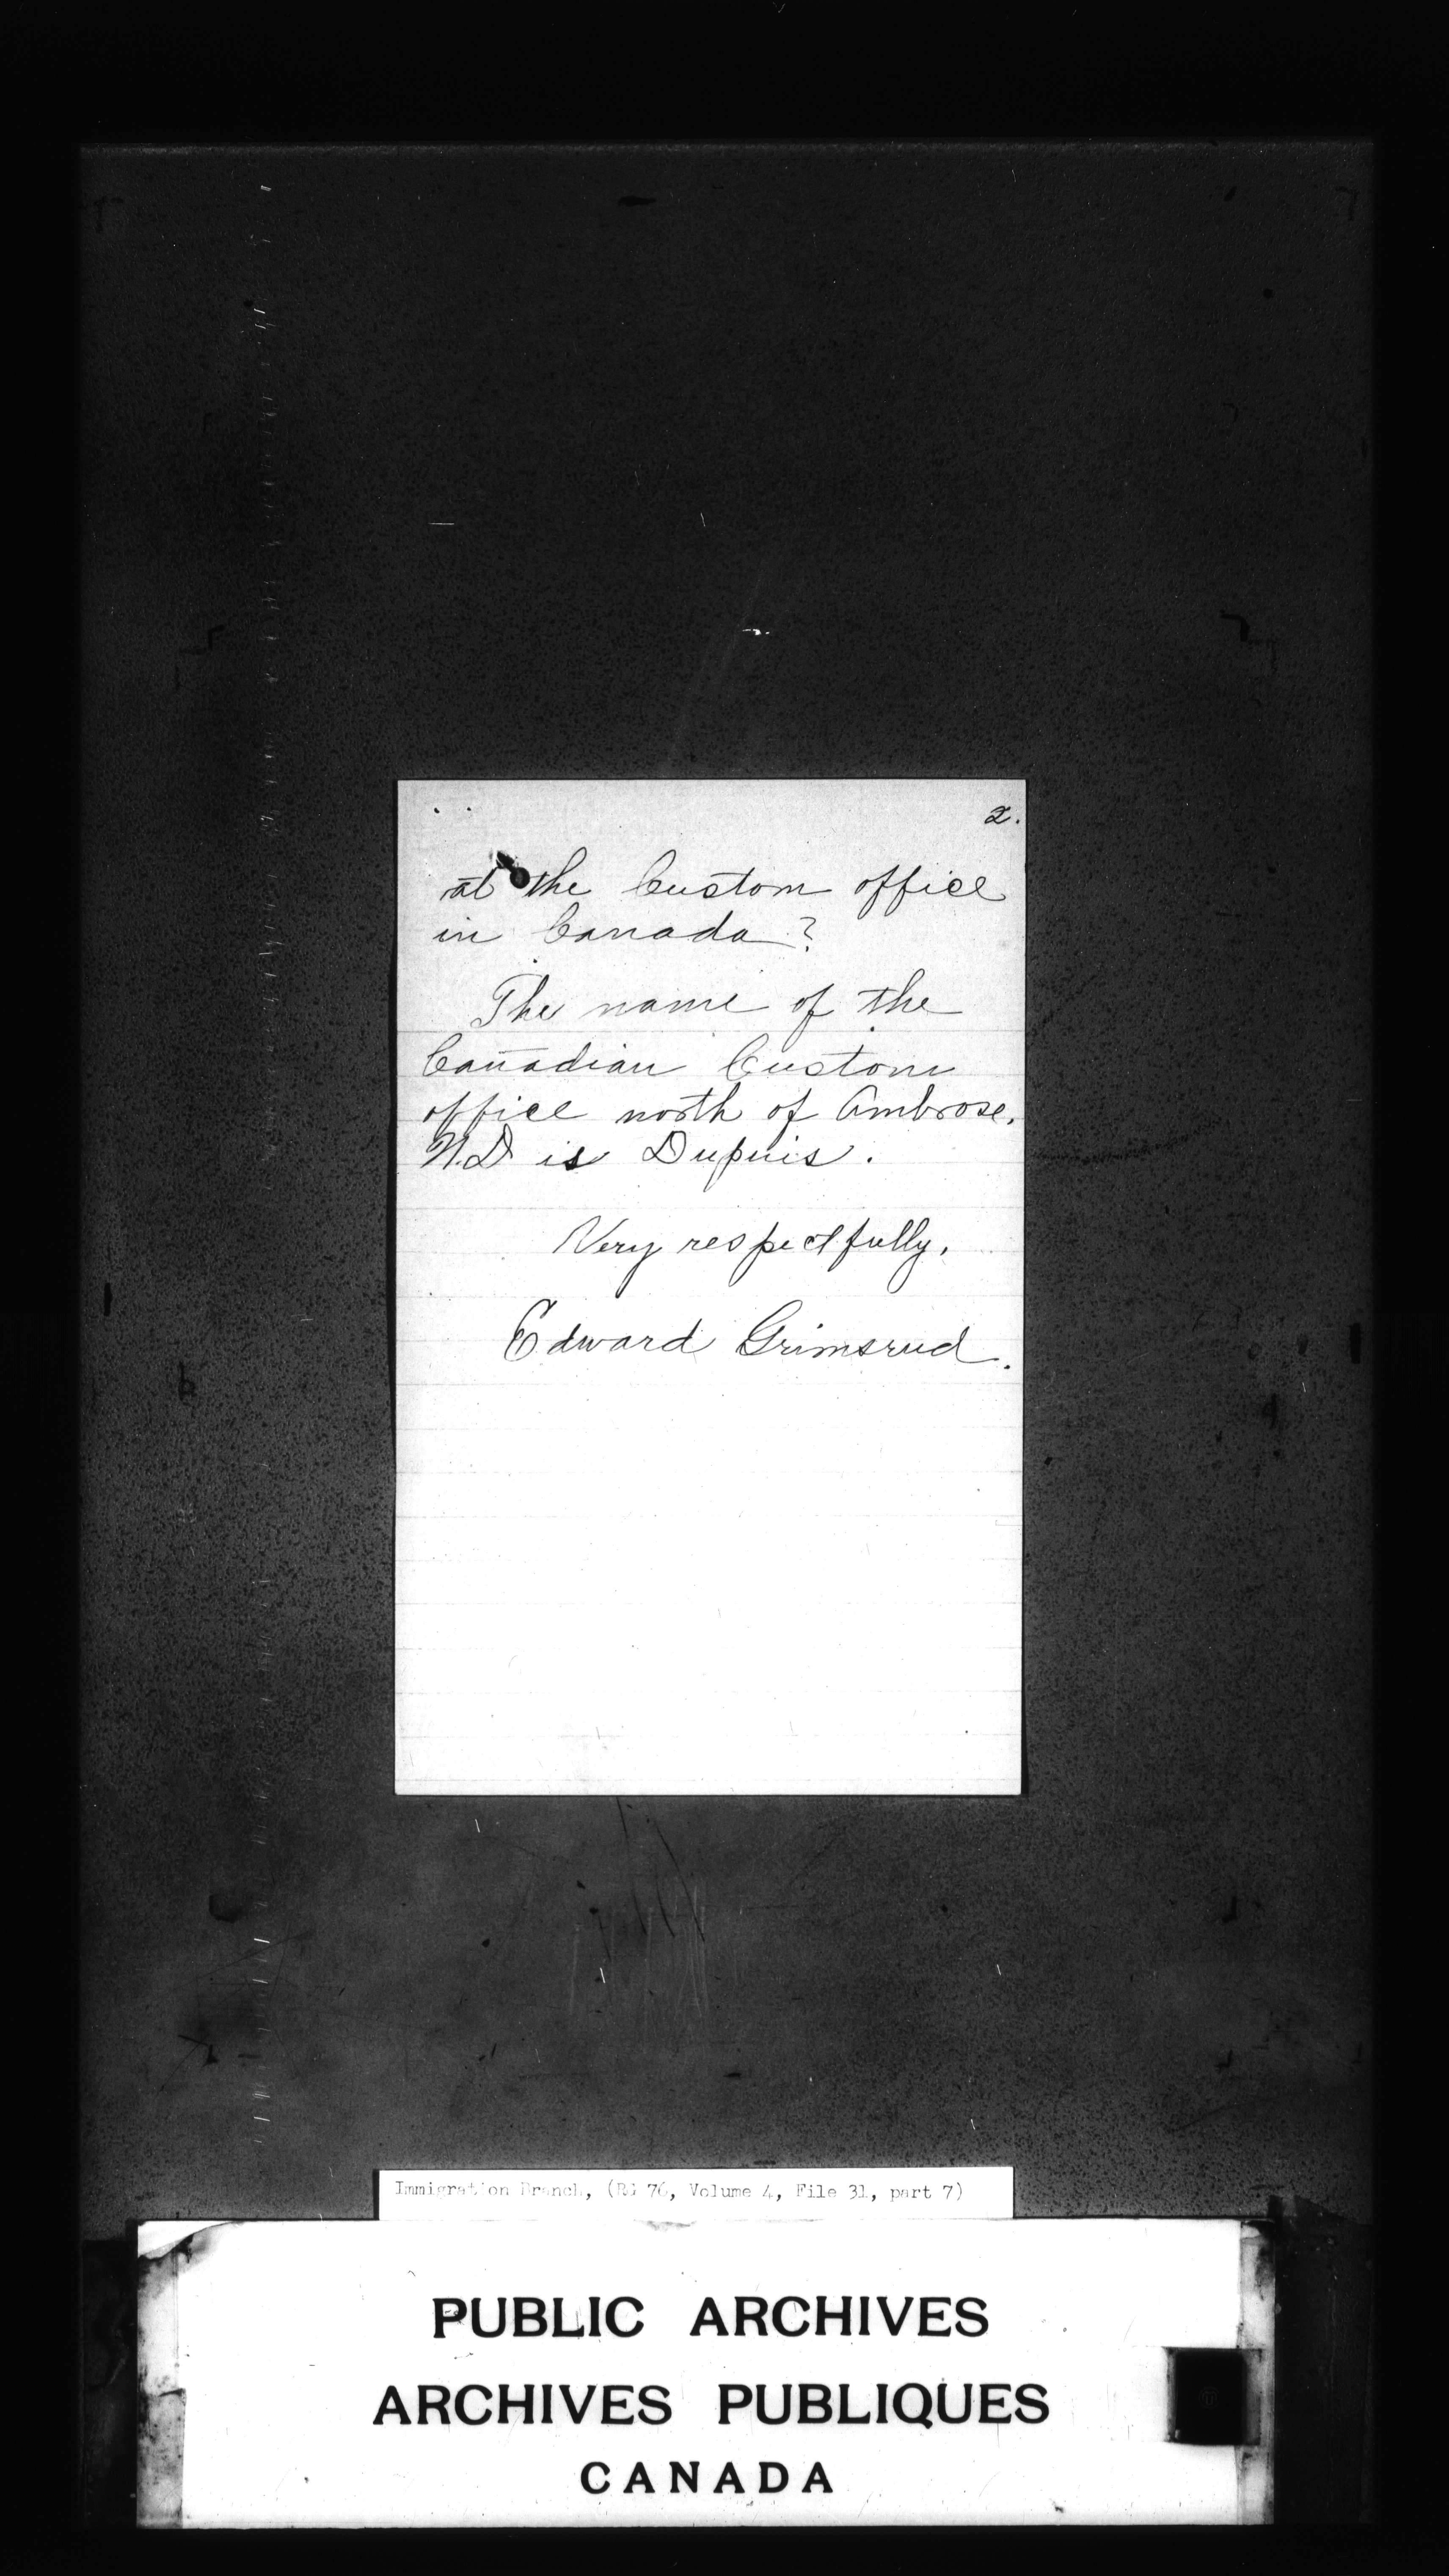 2.
at the Custom office
in Canada?
The name of the
Canadian Custom
office north of Ambrose,
N.D is Dupuis.
Very respectfully,
Edward Grimsrud.
Immigration Branch, (RG 76, Volume 4, File 31, part 7)
PUBLIC ARCHIVES
ARCHIVES PUBLIQUES
CANADA